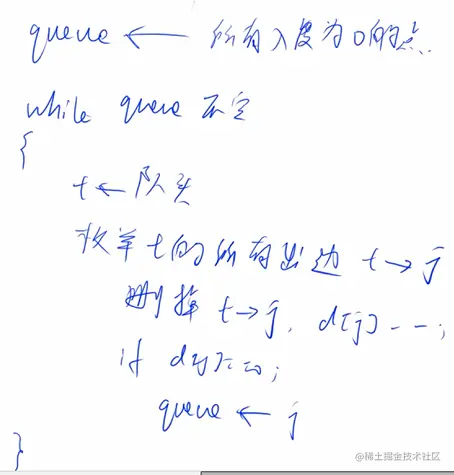 queue ← 所有入度为0的点
while queue 不空
{
t ← 队头
枚举 t 的所有出边 t → j
删掉 t → j, d[j]--;
if d[j]==0;
queue ← j
}
@稀土掘金技术社区